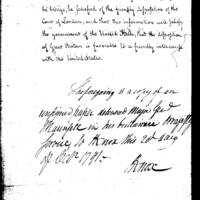 he brings, be satisfied of the friendly disposition of the
Court of London, and that this information will satisfy
the government of the United States, that the disposition
of Great Britain is favorable to a friendly intercourse
with the United States.
The foregoing is a copy of an
unsigned paper delivered Major Genl
in his
to H Knox this 20th day
of Octr 1791.
HKnox